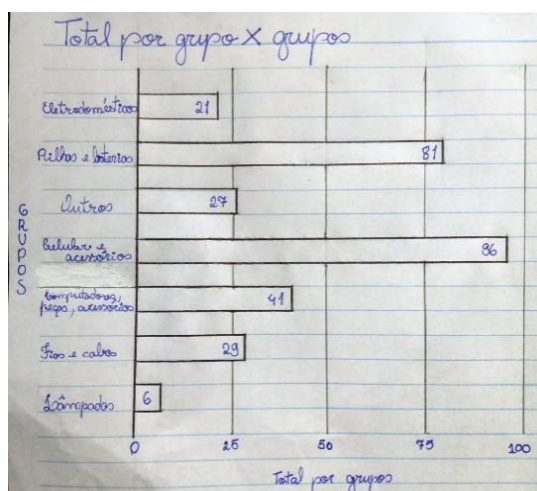 Total por grupo X grupos
Eletrodomésticos
21
Pilhas e baterias
81
Outros
27
GRUPOS
Celular e
acessórios
96
Computadores,
peças, acessórios
41
Fios e cabos
29
Lâmpadas
6
0
25
50
75
100
Total por grupos